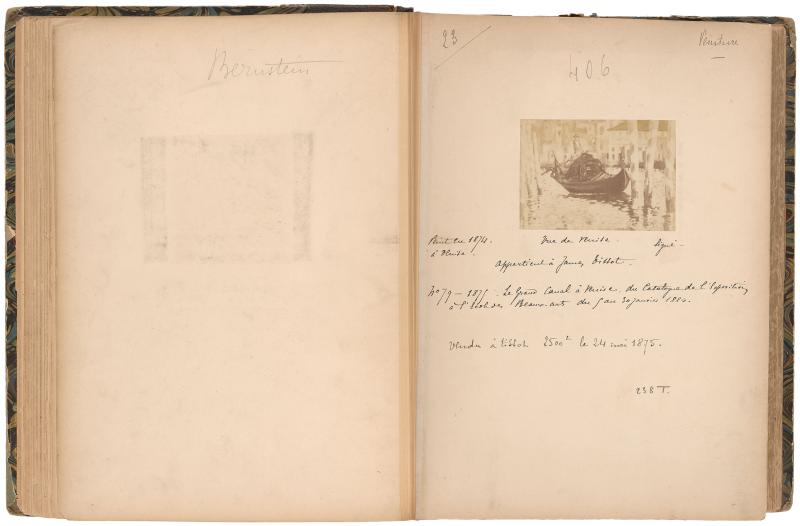 Bernstein
23
Peinture
406
Peint en 1874. Vue de Venise. Signé -
à Venise.
appartient à James Tissot.
No 79 - 1875. Le Grand Canal à Venise. du Catalogue de l'Exposition
à l'École des Beaux-arts du 5 au 30 janvier 1884.
Vendu à Tissot 2500 le 24 mai 1875.
238 T.